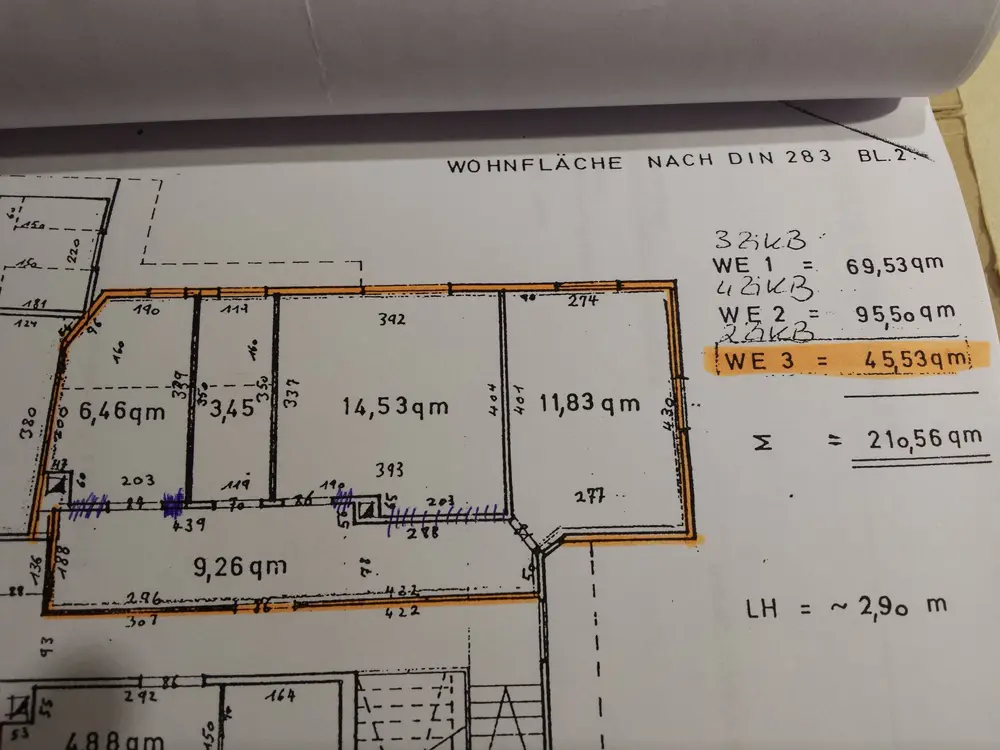 WOHNFLÄCHE NACH DIN 283 BL.2.
3 ZiKB
WE 1 = 69,53qm
4 ZiKB
WE 2 = 95,50qm
2 ZiKB
WE 3 = 45,53qm
Σ = 210,56 qm
LH = ~ 2,90 m
150
220
150
181
124
96
190
113
392
274
160
160
339
350
350
337
404
401
430
380
200
6,46qm
3,45
14,53qm
11,83 qm
60
203
119
190
393
203
277
70
86
439
288
50
9,26 qm
78
136
188
296
86
422
307
422
93
292
86
164
55
53
150
4,88 qm